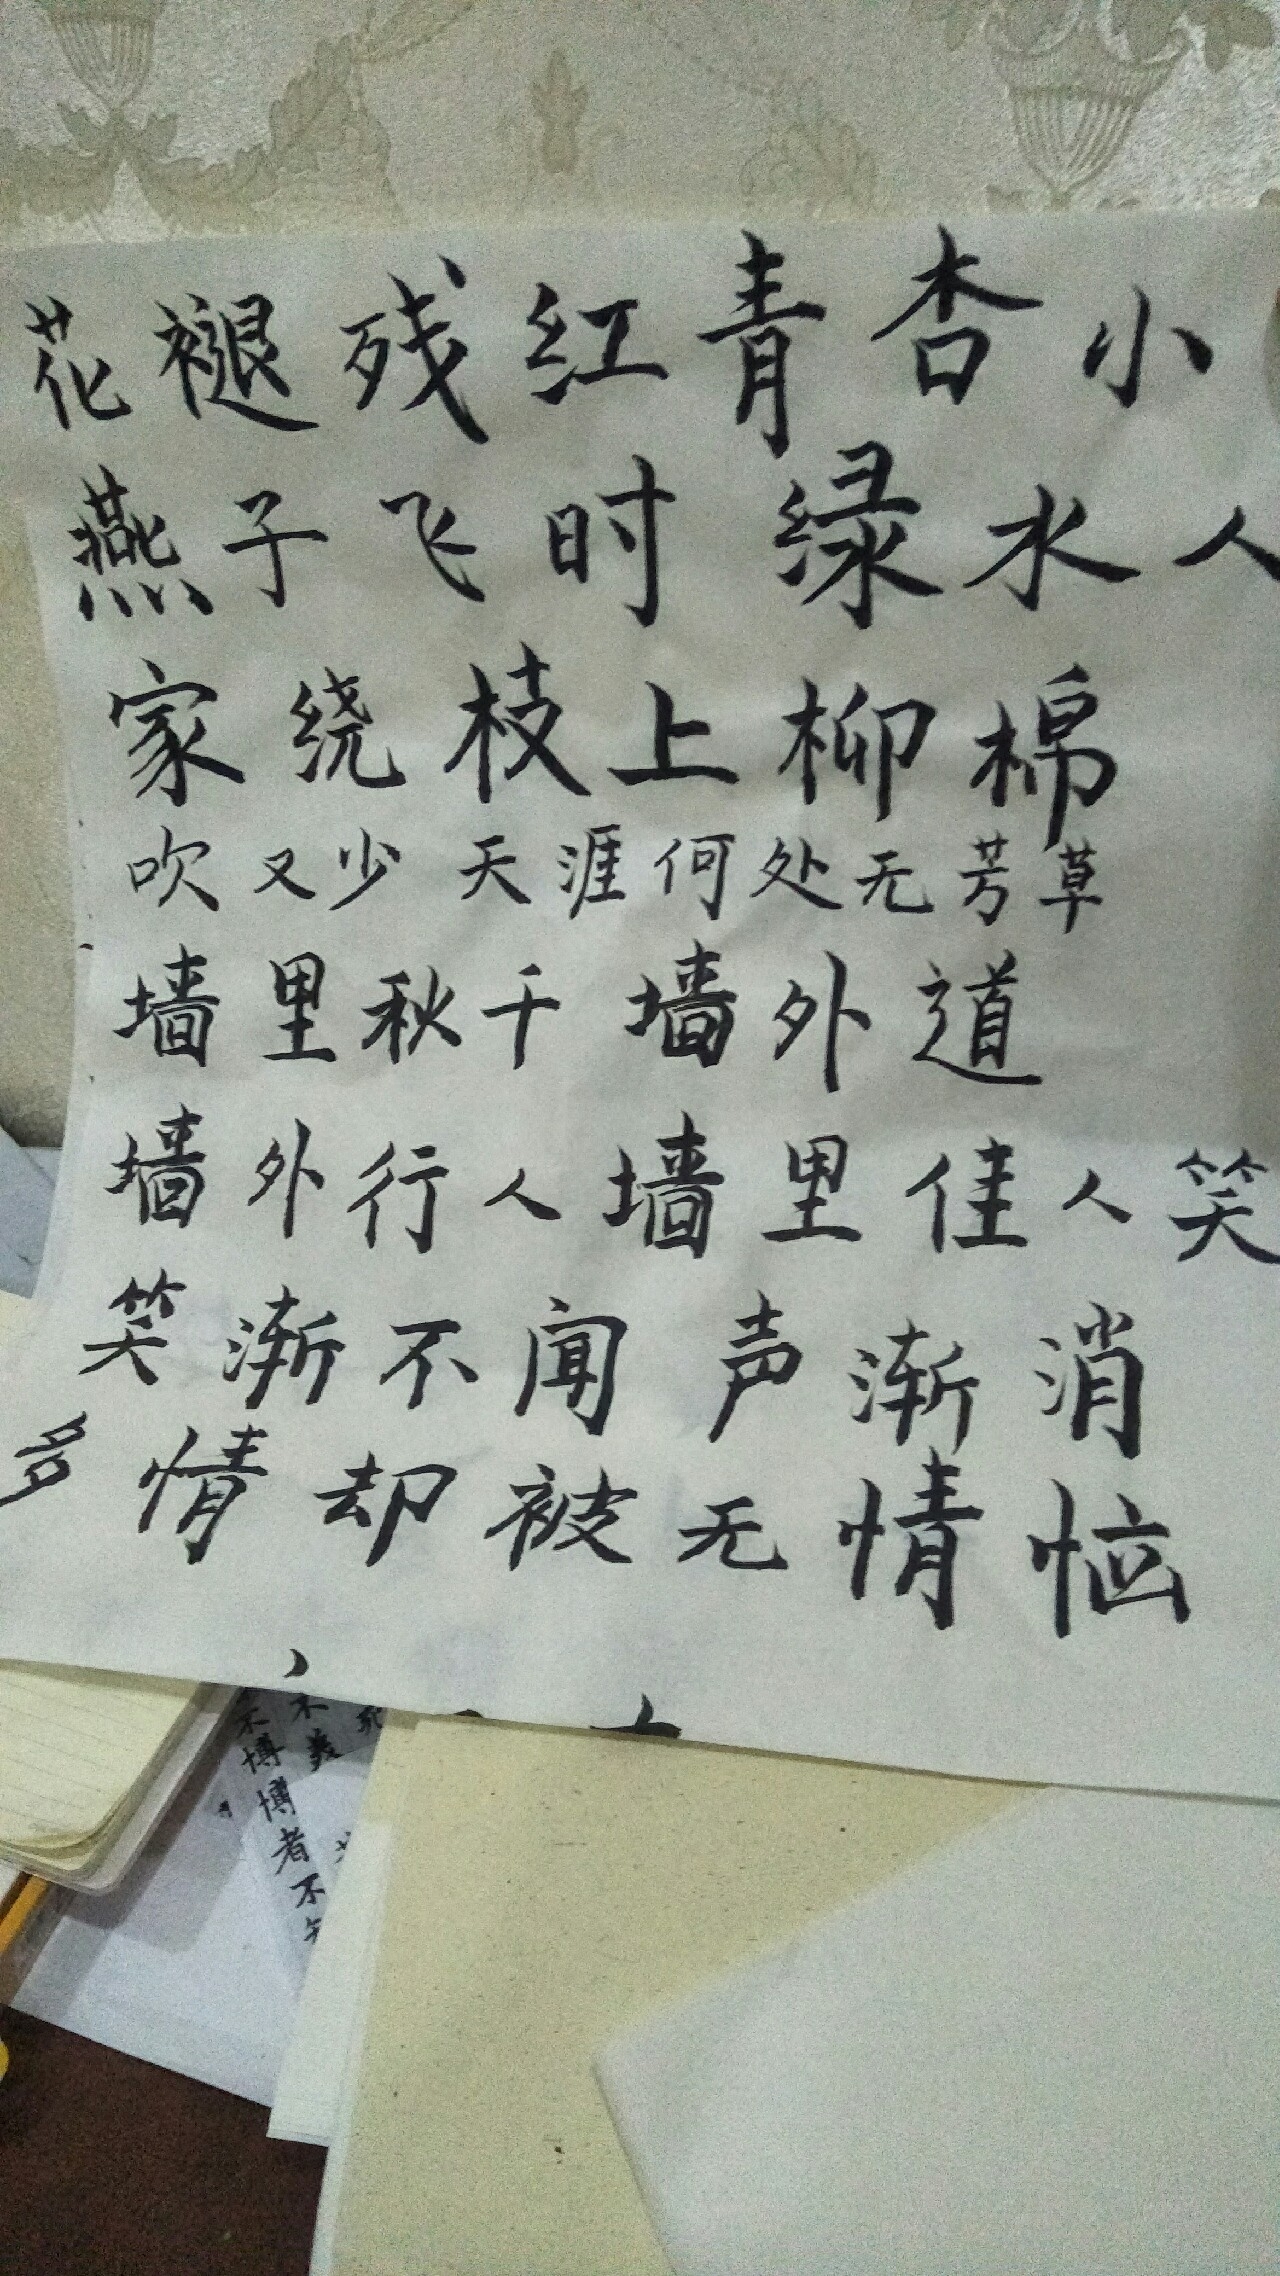 花褪残红青杏小
燕子飞时 绿水人
家绕枝上柳棉
吹又少 天涯何处无芳草
墙里秋千 墙外道
墙外行人墙里佳人笑
笑渐不闻 声渐消
多情却被无情恼
不博博者不
不美